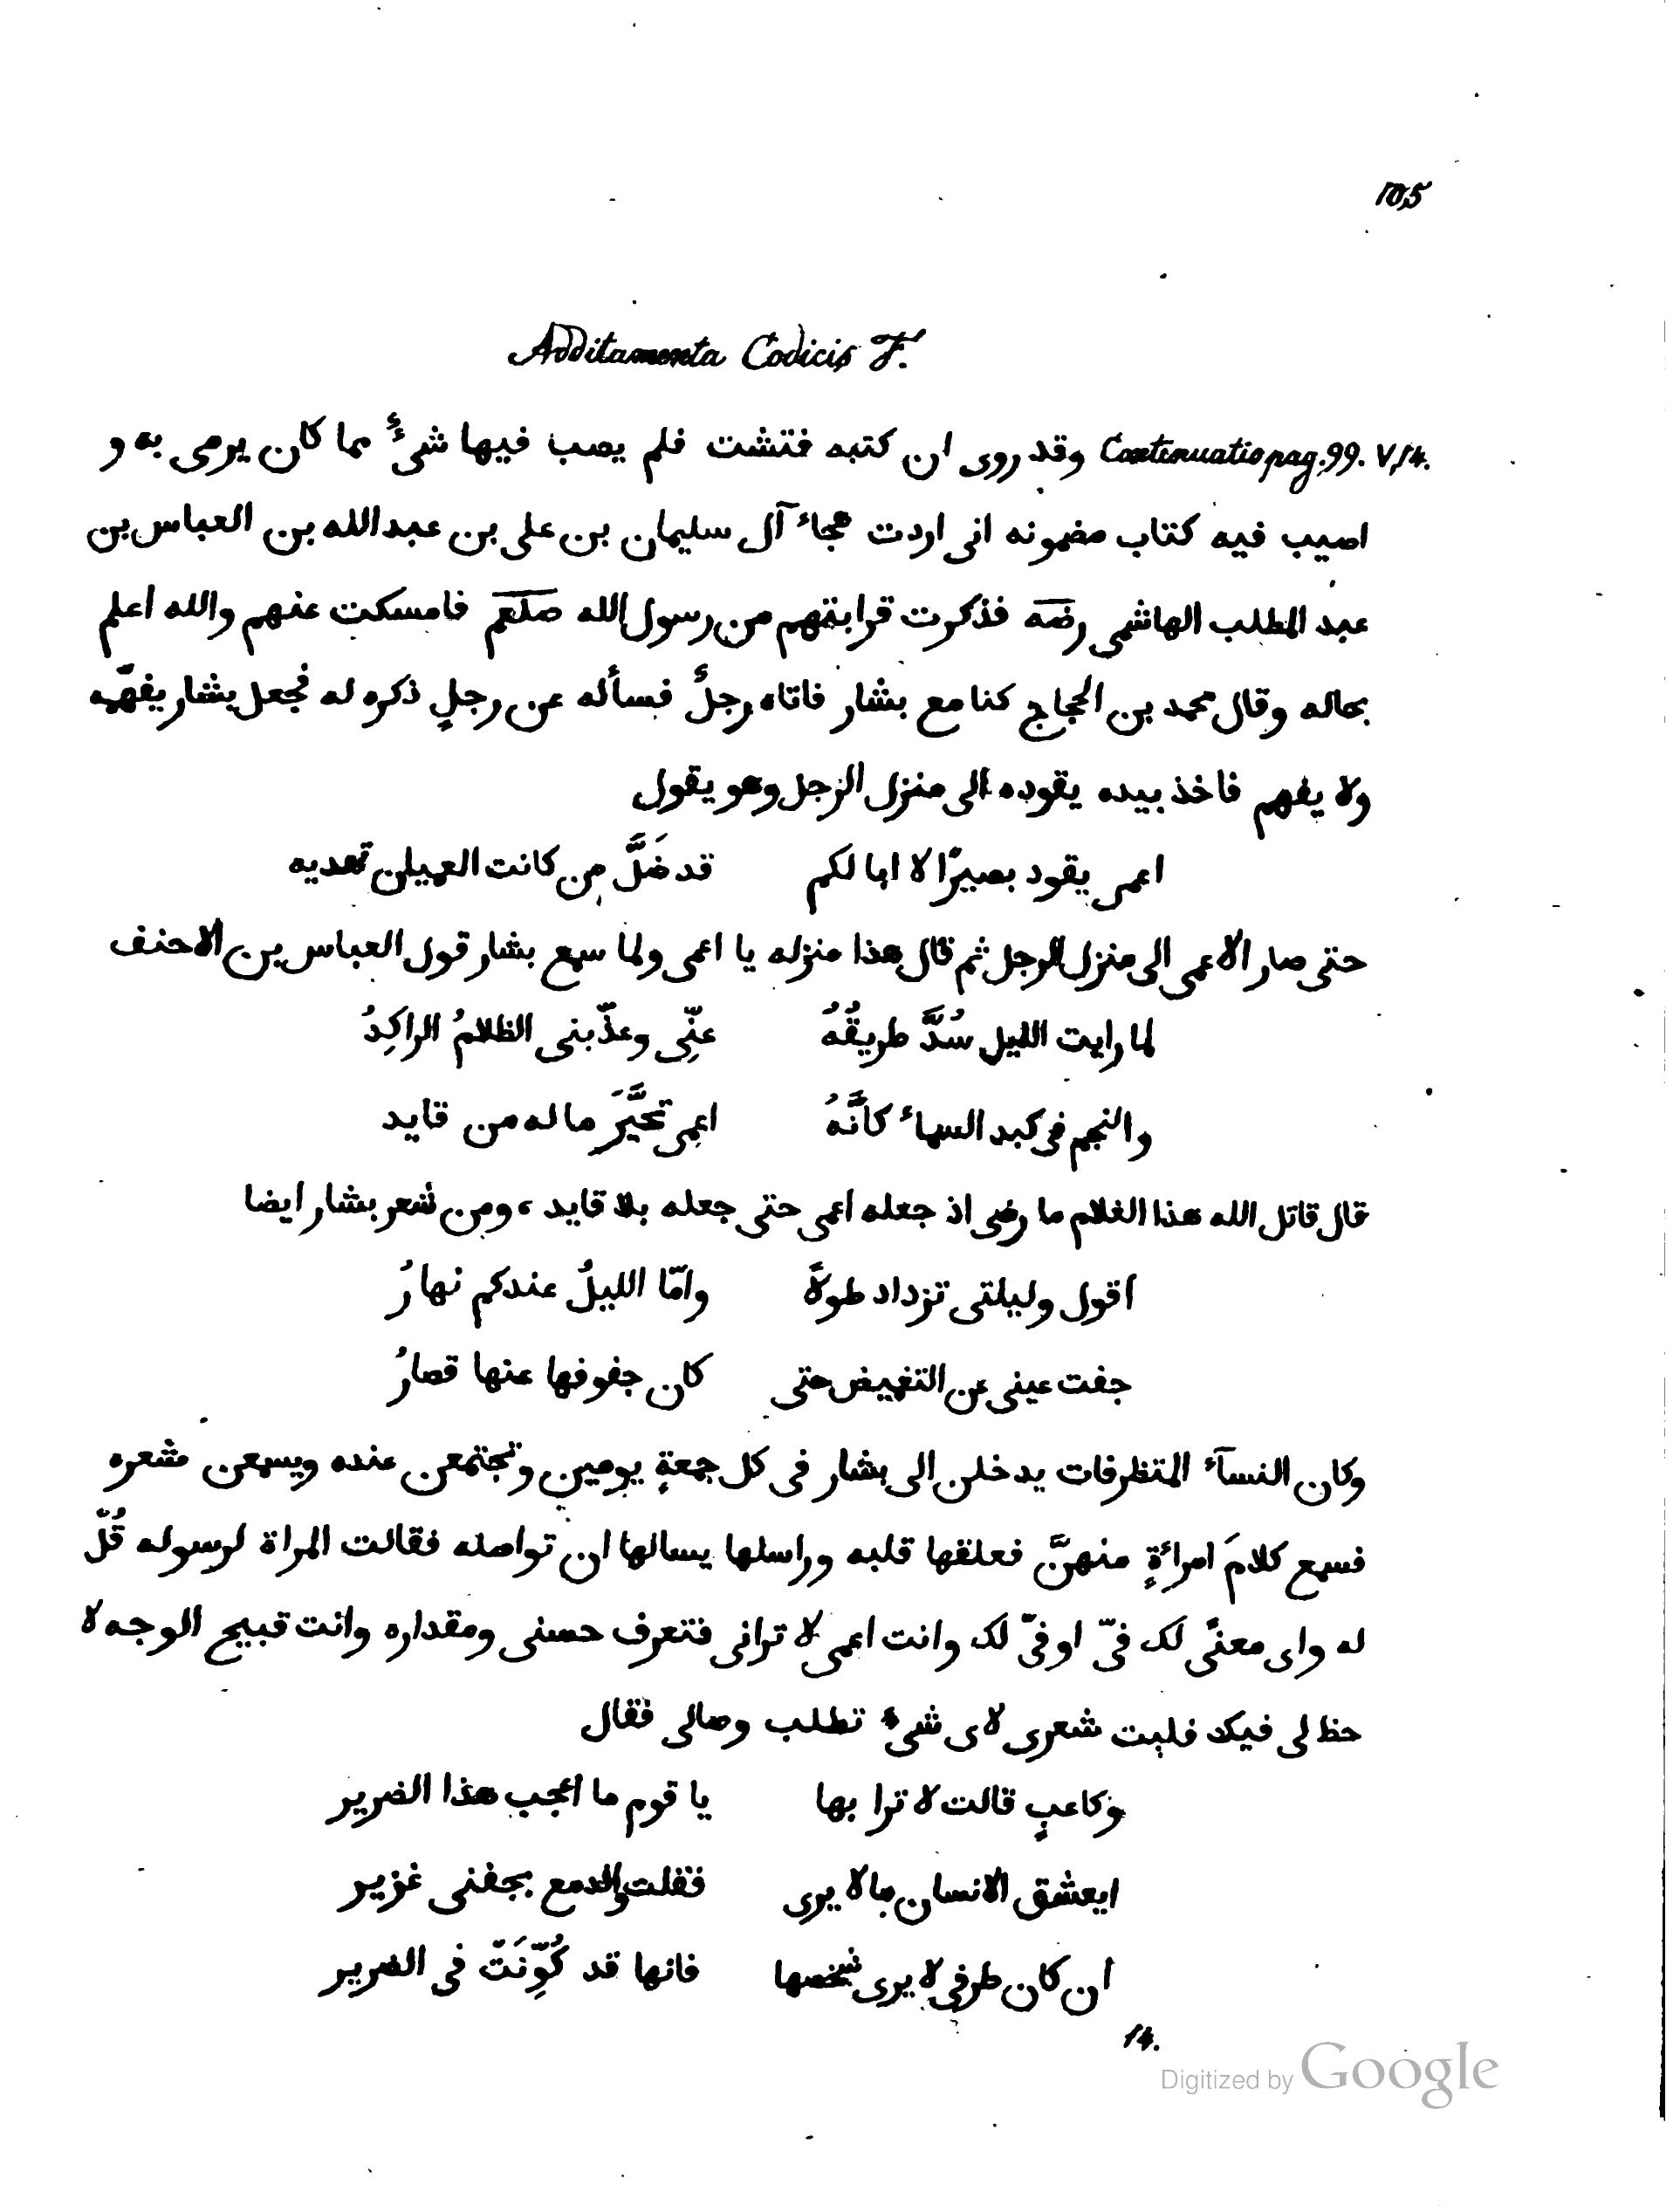 105
Additamenta Codicis F.
Continuatio pag. 99. V. 14. وقد روى ان كتبه فتشت فلم يصب فيها شىءٌ مما كان يرمى به و
اصيب فيه كتاب مضمونه انى اردت هجاء آل سليمان بن على بن عبد الله بن العباس بن
عبد المطلب الهاشمى رضه فذكرت قرابتهم من رسول الله صلعم فامسكت عنهم والله اعلم
بحاله وقال محمد بن الحجاج كنا مع بشار فاتاه رجلٌ فسأله عن رجلٍ ذكره له فجعل بشار يفهّمه
ولا يفهم فاخذ بيده يقوده الى منزل الرجل وهو يقول
اعمى يقود بصيرًا لا ابا لكم قد ضَلَّ من كانت العميان تهديه
حتى صار الاعمى الى منزل الرجل ثم قال هذا منزله يا اعمى ولما سمع بشار قول العباس بن الاحنف
لما رايت الليل سُدَّ طريقُهُ عنِّى وعذّبنى الظلامُ الراكِدُ
والنجم فى كبد السماء كانَّهُ اعمى تحيَّرَ ما له من قايد
قال قاتل الله هذا الغلام ما رضى اذ جعله اعمى حتى جعله بلا قايد ، ومن شعر بشار ايضا
اقول وليلتى تزداد طولاً وامّا الليلُ عندكم نهارُ
جفت عينى عن التغميض حتى كان جفوفها عنها قصارُ
وكان النسآء المتظرفات يدخلن الى بشار فى كل جمعةٍ يومين وتجتمعن عنده ويسمعن شعره
فسمع كلامَ امرائةٍ منهنَّ فعلقها قلبه وراسلها يسالها ان تواصله فقالت المراة لرسوله قُلْ
له واى معنًى لك فىّ او فىّ لك وانت اعمى لا ترانى فتعرف حسنى ومقداره وانت قبيح الوجه لا
حظ لى فيك فليت شعرى لاى شىء تطلب وصالى فقال
وكاعبٍ قالت لا ترا بها يا قوم ما اعجب هذا الضرير
ايعشق الانسان ما لا يرى فقلت والدمع بجفنى غزير
ان كان طرفى لا يرى شخصها فانها قد كُوِّنَتْ فى الضرير
14.
Digitized by Google